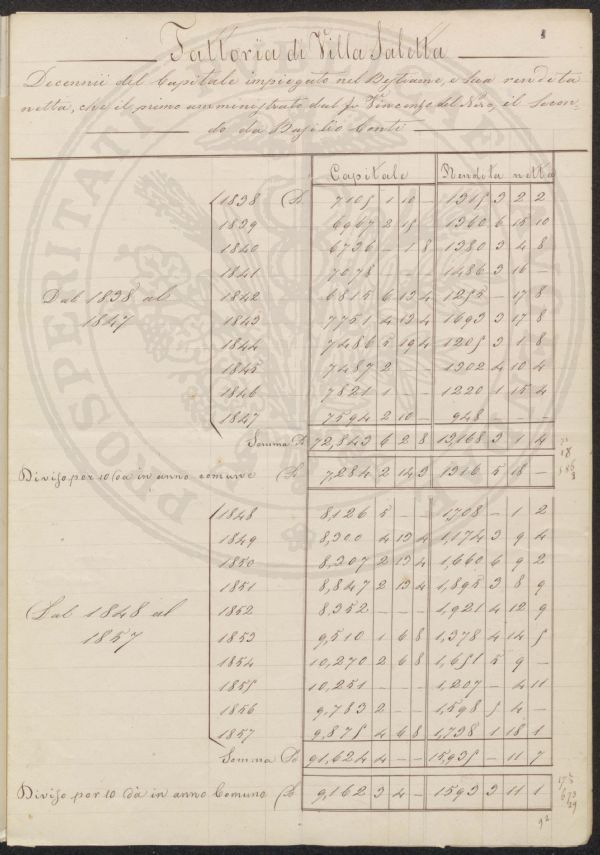 Fattoria di Villa Saletta
Decennii del Capitale impiegato nel Bestiame, e sua rendeta
netta, che il primo amministrato dal fu Vincenzo del Nero, il Secon-
do da Basilio Conti
Capitale Rendeta netta
1838 7105 1 10 – 1315 3 2 2
1839 6967 2 15 – 1360 6 18 10
1840 6736 – 1 8 1380 3 4 8
1841 7078 – – – 1486 3 16 –
Dal 1838 al 1842 6815 6 13 4 1255 – 17 8
1847 1843 7751 4 13 4 1693 3 17 8
1844 7486 5 19 4 1205 3 1 8
1845 7487 2 – – 1302 4 10 4
1846 7821 1 – – 1220 1 15 4
1847 7594 2 10 – 948 – – –
Somma 72,843 6 2 8 13,168 3 1 4
Diviso per 10 da in anno comune 7,284 2 14 3 1316 5 18 –
1848 8,126 5 – – 1,708 – 1 2
1849 8,300 4 13 4 1,174 3 9 4
1850 8,307 2 13 4 1,660 6 9 2
1851 8,847 2 13 4 1,895 3 8 9
Dal 1848 al 1852 8,352 – – – 1,921 4 12 9
1857 1853 9,510 1 6 8 1,378 4 14 5
1854 10,270 2 6 8 1,651 5 9 –
1855 10,251 – – – 1,207 – 4 11
1856 9,783 2 – – 1,598 5 4 –
1857 9,875 4 6 8 1,738 1 18 1
Somma 91,624 4 – – 15,935 – 11 7
Diviso per 10 dà in anno Comune 9,162 3 4 – 1593 3 11 1
PROSPERITAT